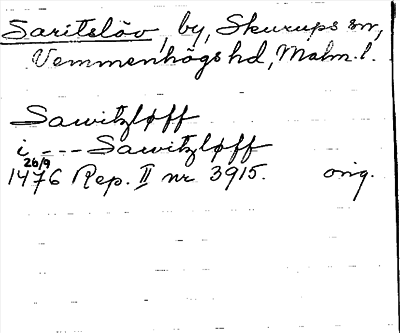 Saritslöv, by, Skurups sn,
Vemmenhögs hd, Malm. l.
Sawitzløff
i --- Sawitzløff
26/9
1476 Rep. II nr 3915. orig.